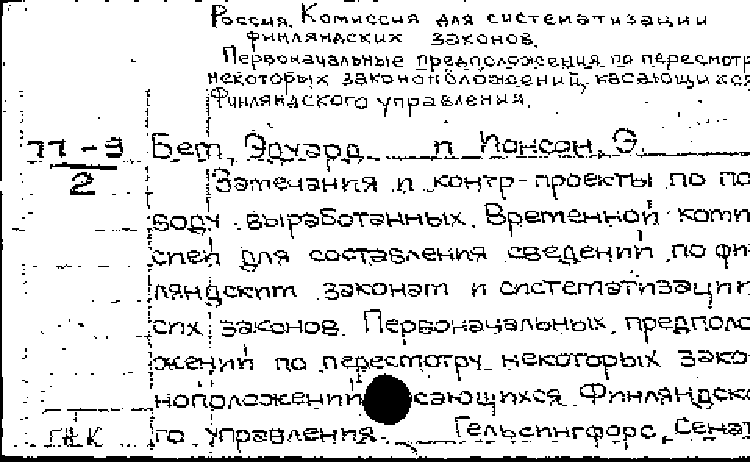 Россия. Комиссия для систематизации
финляндских законов.
Первоначальные предположения по пересмотр
некоторых законоположений, касающихся
Финляндского управления.
77-3 Бет, Эдхард и Ионсон, Э.
2 Замечания и контр-проекты по по
воду выработанных Временной комис
сией для составления сведений по фин
ляндским законам и систематизации
сих законов. Первоначальных предполо
жений по пересмотру некоторых зако
ноположений сающихся Финляндско
ГНК го управления. Гельсингфорс, Сенат